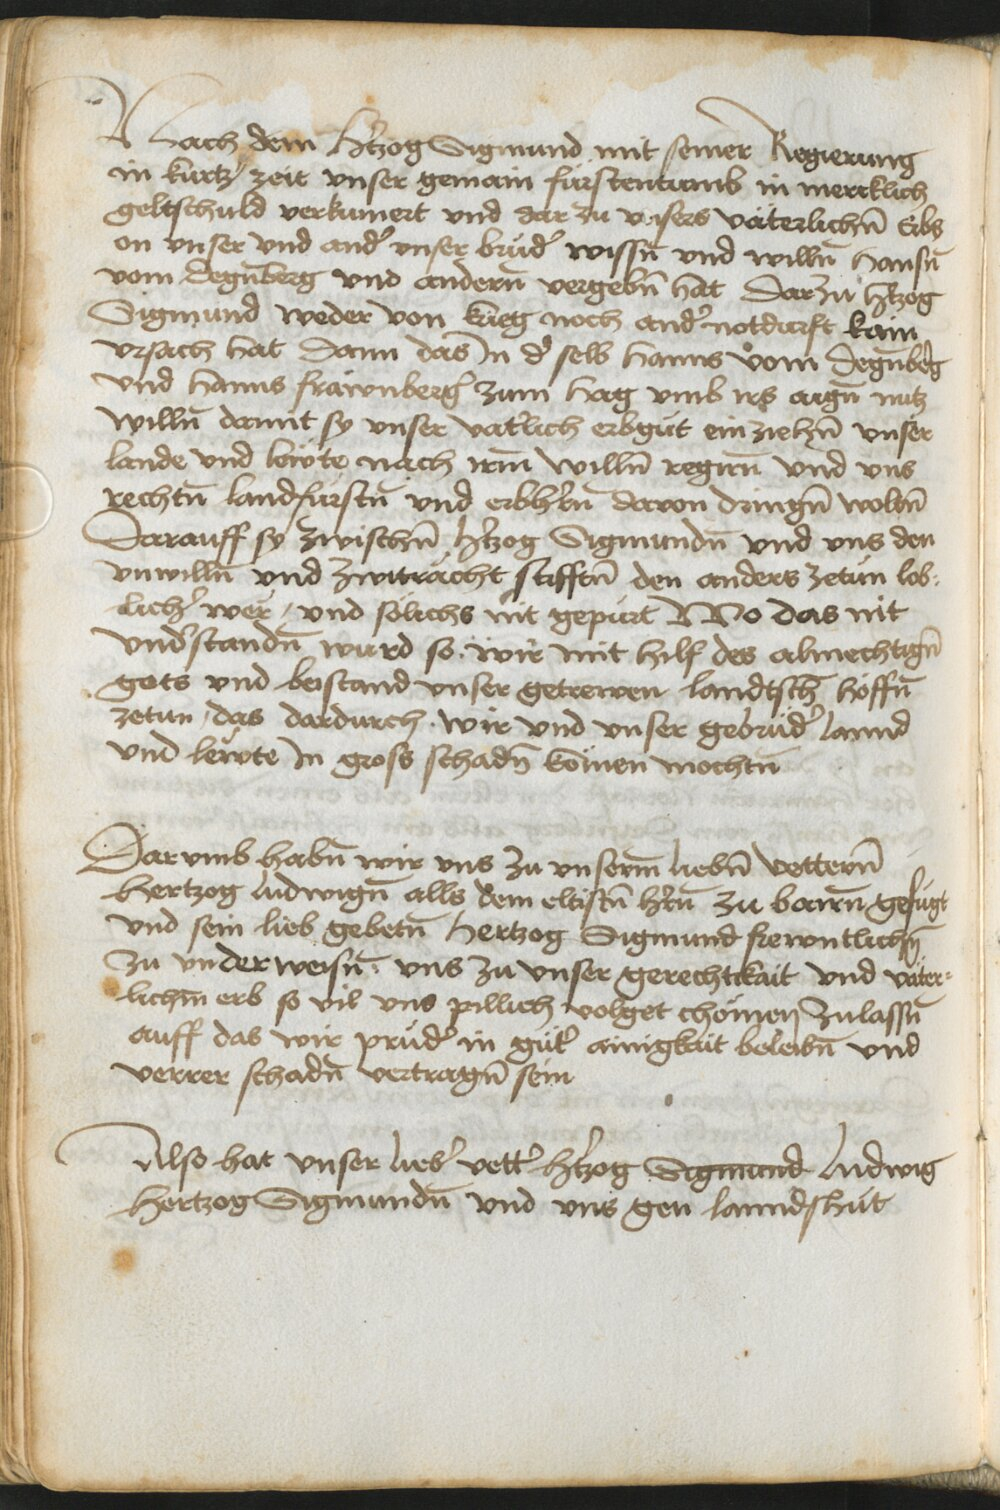 Nach dem Hertzog Sigmund mit seiner Regierung
in kurtzer zeit vnser gemain fürstentumb in mercklich
geltschuld verkumert vnd dar zu vnsers väterlichn̄ Erbs
on vnser vnd and̾ vnser brüd̾ wissn̄ vnd willn̄ Hansn̄
vom Degnberg vnd andern̄ vergebn̄ hat Darzu h̾tzog
Sigmund weder von krieg noch and̾ notdurft kain
vrsach hat Dann das In d̾ selb Hanns vom Degnb̾g
vnd Hanns frawnberg̾ zum Hag vmb irs aign̄ nutz
willn̄ damit sy vnser vät̾lich erbgut ein ziehn̄ vnser
lande vnd lewte nach irm̄ willn̄ regirn̄ vnd vns
rechtn̄ landfürstn̄ vnd erbh̾rn̄ dauon dringn̄ wolln̄
Darauff sy zwischn̄ h̾tzog Sigmundn̄ vnd vns den
vnwilln̄ vnd zwiträcht stifftn̄ den anders zetün lob-
lich̾ wer / vnd sölichs nit gepürt Wo das nit
vnd̾standn̄ wurd so wir mit hilf des almechtign̄
gots vnd beistand vnser getrewen landtsch̄ hoffn̄
zetun / das dardurch wir vnd vnser gebrüd̾ lannd
vnd lewte In gross schadn̄ kom̄en mochtn̄

Dar vmb habn̄ wir vns zu vnserm̄ liebn̄ vettern̄
Hertzog Ludwign̄ alls dem eltistn̄ h̾rn̄ zu bairn̄ gefügt
vnd sein lieb gebetn̄ Hertzog Sigmund frewntlichn̄
zu vnderweisn̄ vns zu vnser gerechtikait vnd väter-
lichm̄ erb so vil vns pillich volget chom̄en zulassn̄
auff das wir prüd̾ in güt̾ ainigkait beleibn̄ vnd
verrer schadn̄ vertragn̄ sein

Also hat vnser lieb̾ vett̾ h̾tzog Sigmund Ludwig
Hertzog Sigmundn̄ vnd vns gen lanndshut